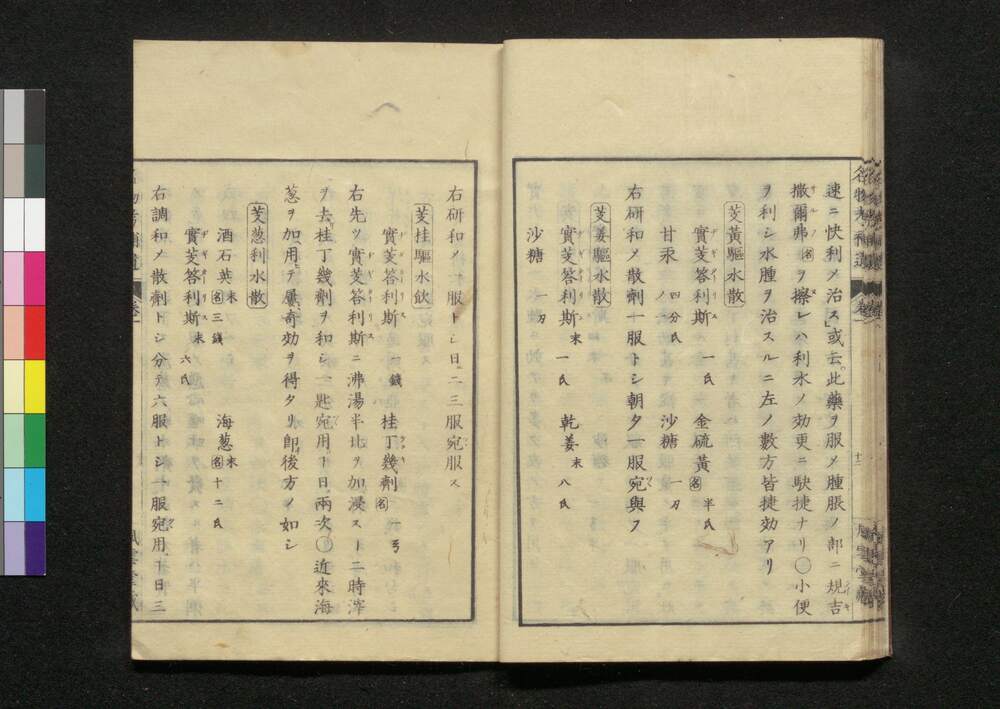 速ニ快利メ治ス」或云。此藥ヲ服メ腫脹ノ部ニ規吉
撒爾弗名ヲ擦レハ利水ノ効更ニ駃捷ナリ〇小便
ヲ利シ水腫ヲ治スルニ左ノ數方皆捷効アリ
芰黃驅水散
實芰答利斯 一氏 金硫黃名 半氏
甘汞 四分氏ノ一 沙糖 一刃
右研和メ散劑一服トシ朝夕一服宛與フ
芰姜驅水散
實芰答利斯末 一氏 乾姜末 八氏
沙糖 一刃
右研和メ一服トシ日二三服宛服ス
芰桂驅水飲
實芰答利斯 一錢 桂丁幾劑名
右先ツ實芰答利斯ニ沸湯半比ヲ加浸スト二時滓
ヲ去桂丁幾劑ヲ和シ一匙宛用ト日兩次〇近來海
葱ヲ加用テ屢奇効ヲ得タリ即後方ノ如シ
芰葱利水散
酒石英末名三錢 海葱末名十二氏
實芰答利斯末 六氏
右調和メ散劑トシ分テ六服トシ一服宛用ト日三